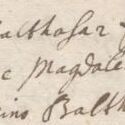 althasar
c Magdale
ino Balth